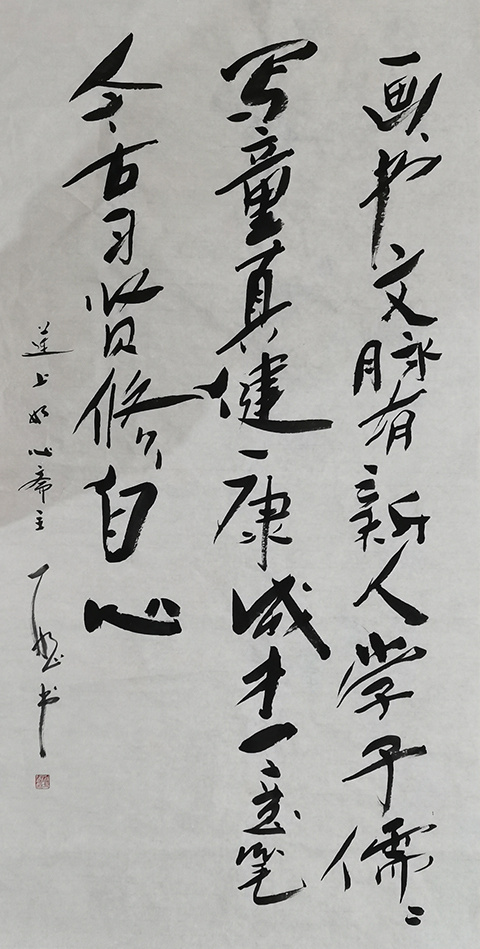 画书文脉有新人学子儒々
写童真健康成才一意笔
今古习贤修自心
莲上如心斋主 丁 书